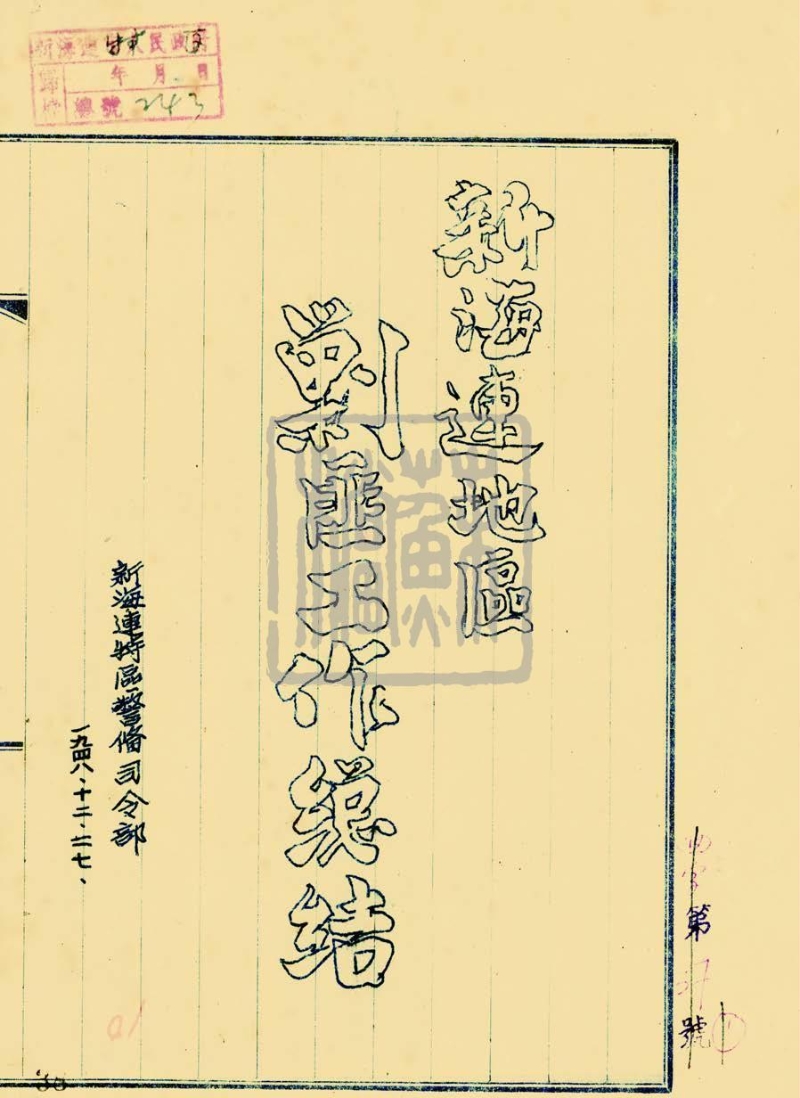 新海連地區
剿匪工作總結
新海連特區警備司令部
一九四八、十二、二七、
新海連特東民政
年 月 日
歸檔
總號 243
第
號
35